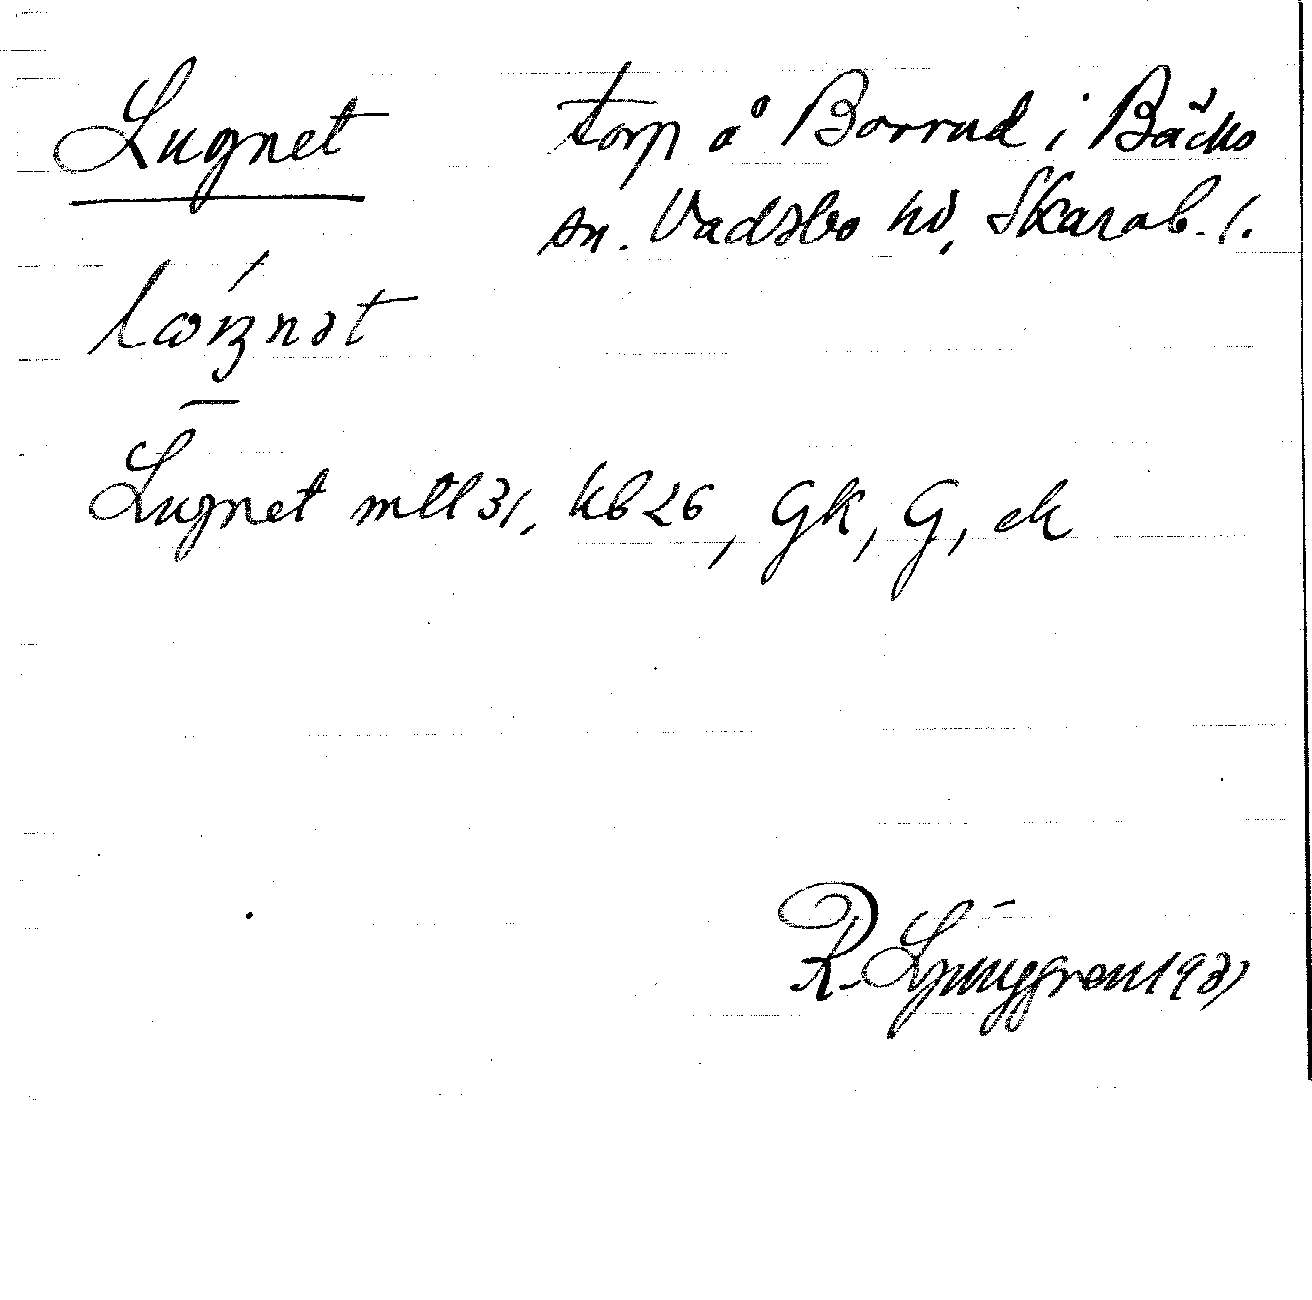 Lugnet torp å Borrud i Bäcks
sn. Vadsbo hd, Skarab. l.
Lugnet mtl 31, kb 26, Gk, G, ek
R. Ljunggren 1931